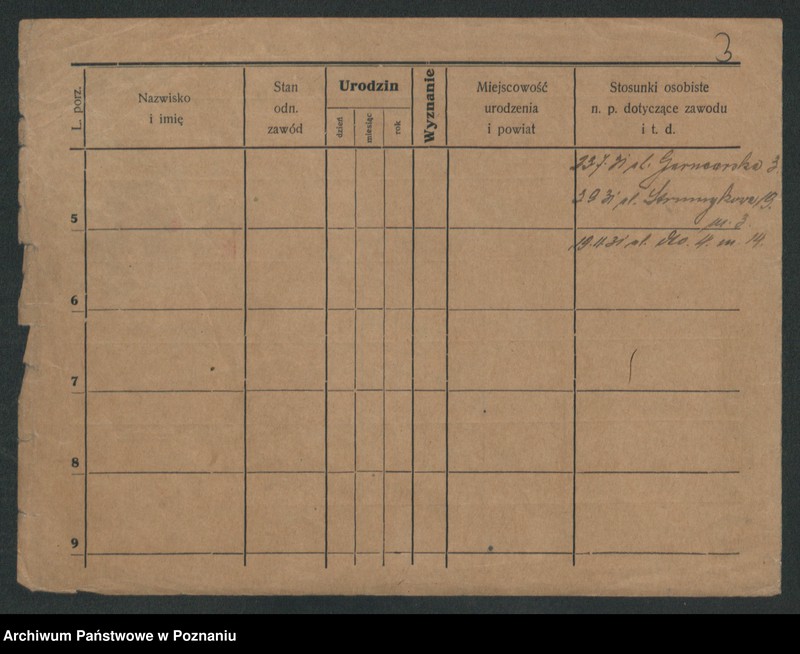 3
L. porz.
Nazwisko
i imię
Stan
odn.
zawód
Urodzin
dzień
miesiąc
rok
Wyznanie
Miejscowość
urodzenia
i powiat
Stosunki osobiste
n. p. dotyczące zawodu
i t. d.
23.7.31 ul. Garncarska 3
3 9 31 ul. Strumykowa 19.
m. 3
5
19.11.31 ul. dto. 4. m. 14.
6
7
8
9
Archiwum Państwowe w Poznaniu